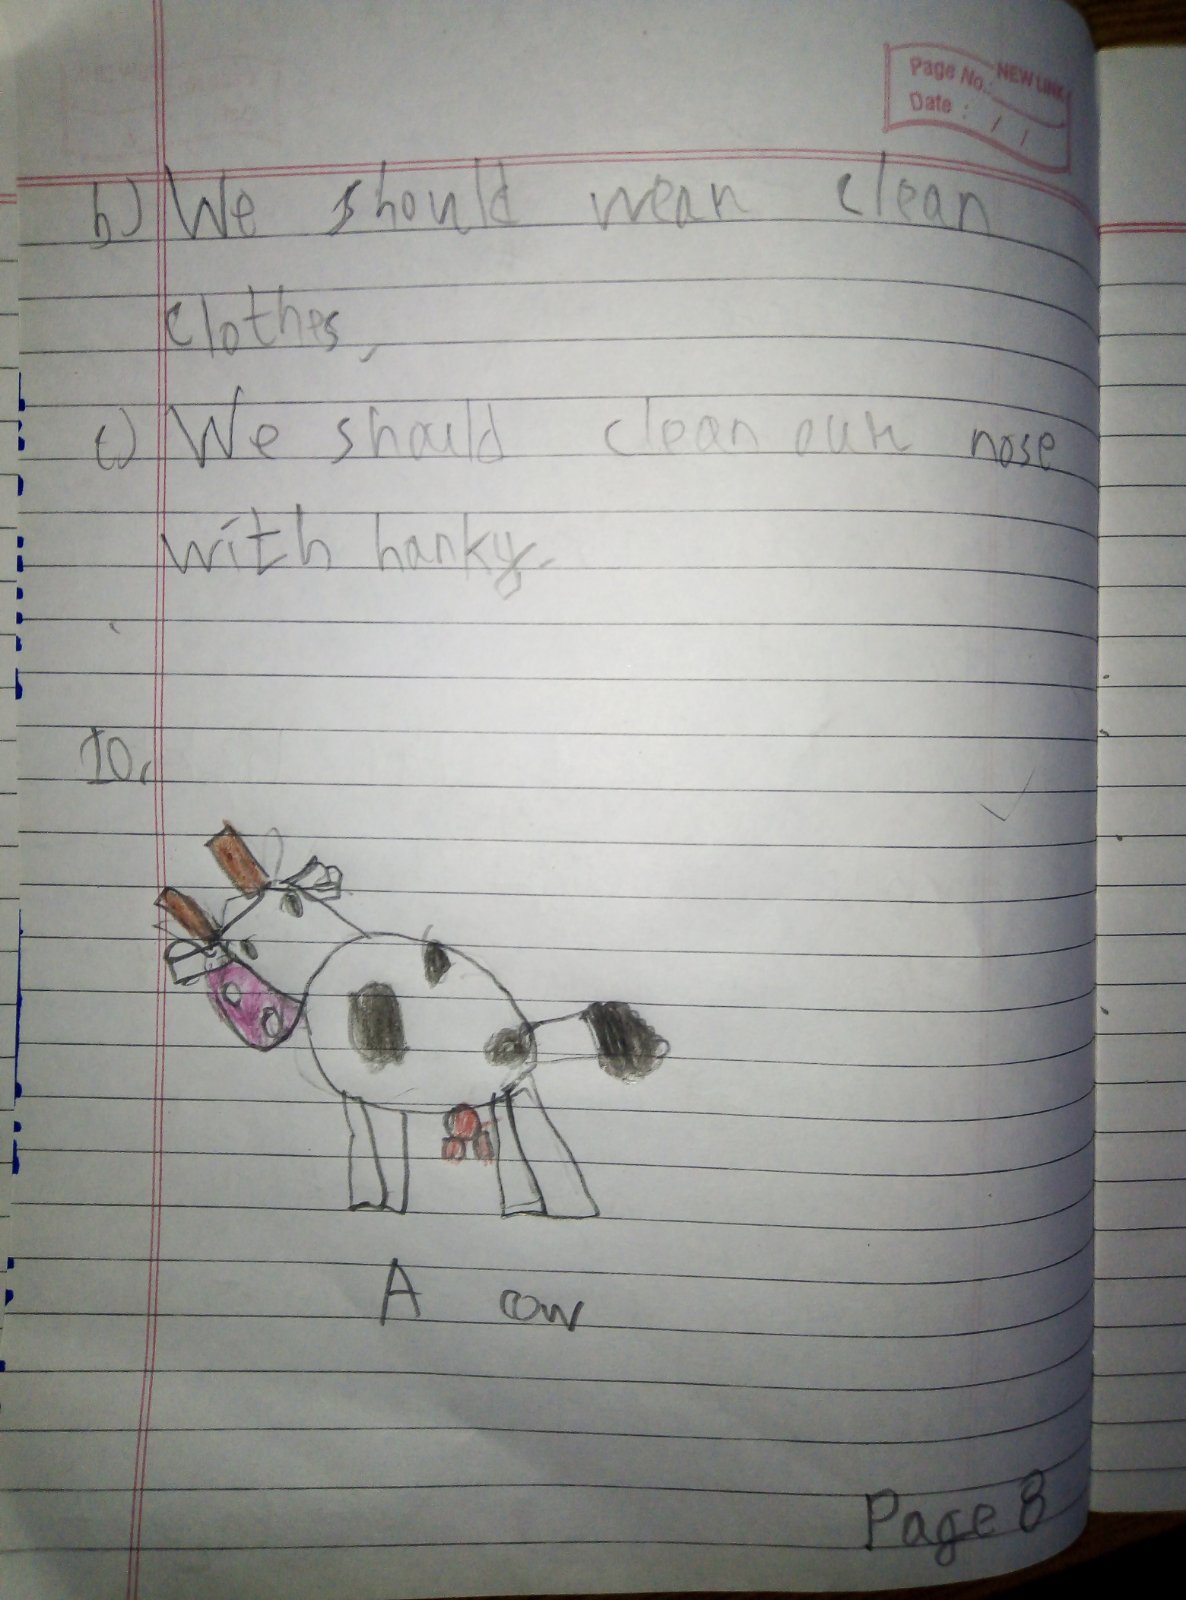 NEW LINK
Page No.:
Date : / /
b) We should wear clean
clothes,
c) We should clean our nose
with hanky.
10.
A cow
Page 8